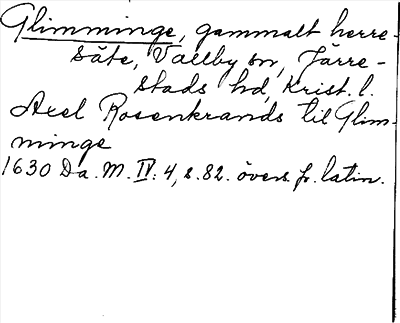 Glimminge, gammalt herre-
säte, Vallby sn, Järre-
stads hd, Krist. l.
Axel Rosenkrands til Glim-
minge
1630 Da. M. IV: 4, s. 82. övers. fr. latin.